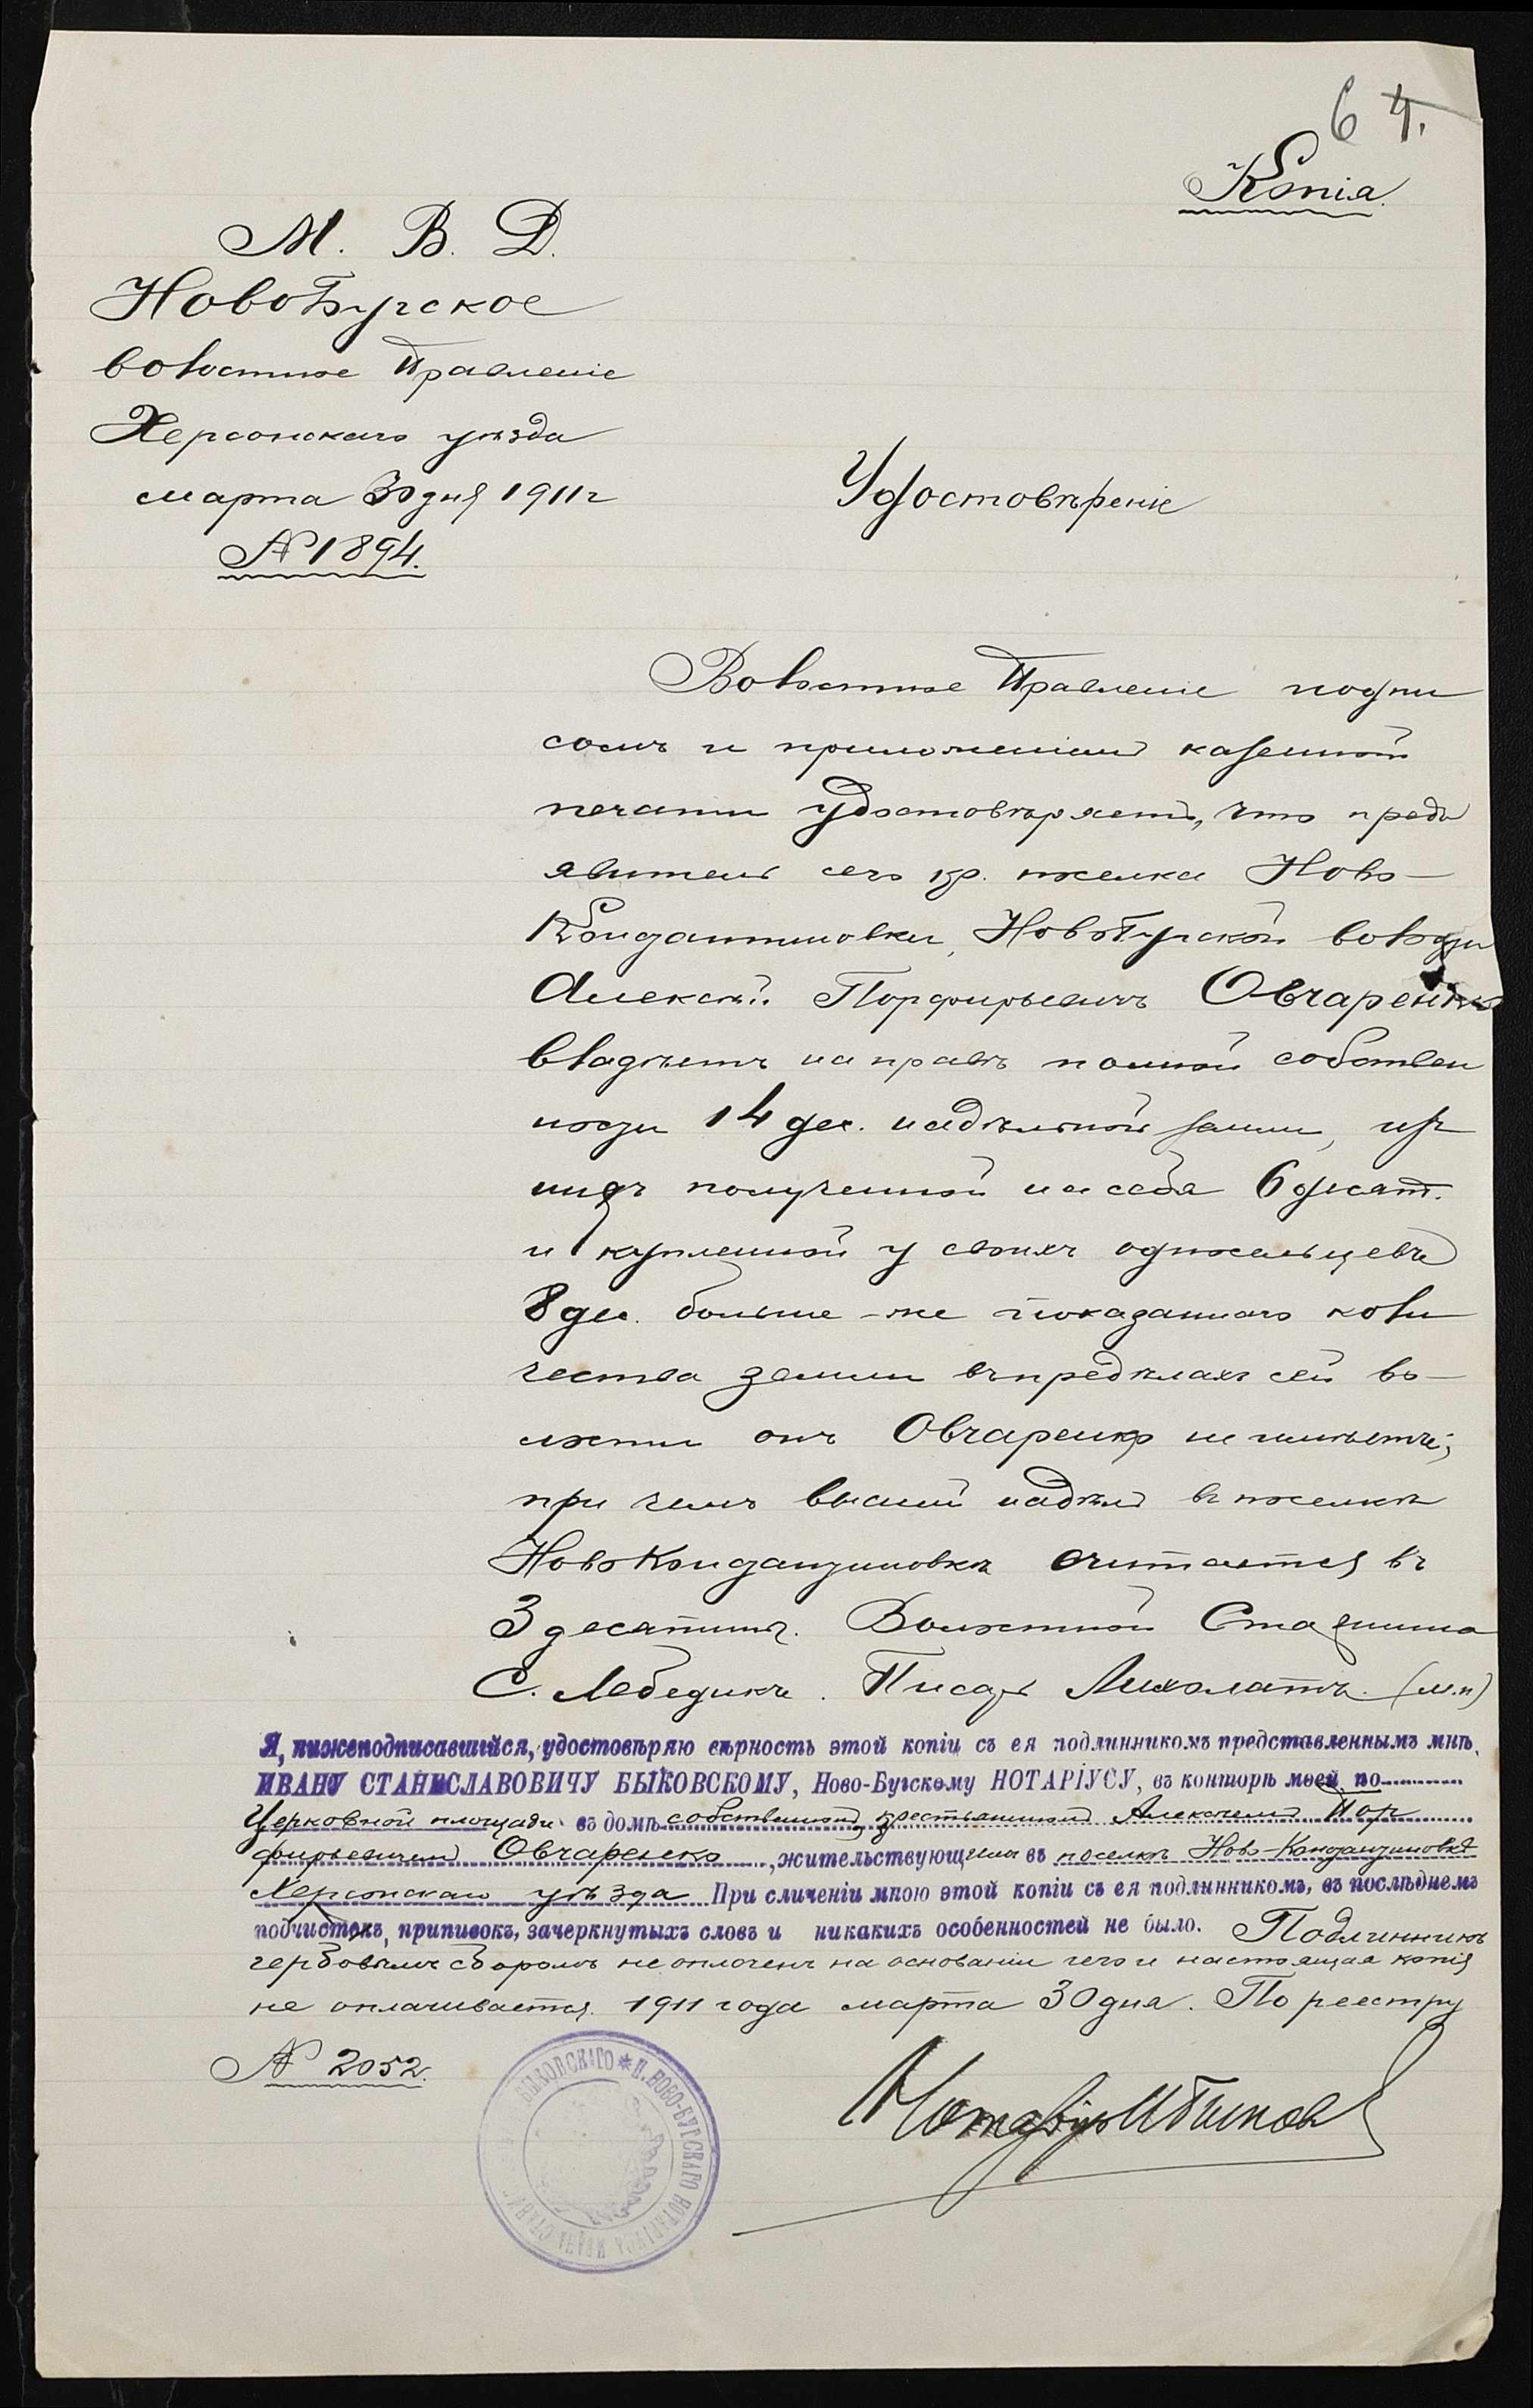 6 4.
Копія.
М. В. Д.
НовоБугское
волостное Правленіе
Херсонскаго уѣзда
марта 30 дня 1911 г
№ 1894.
Удостовѣреніе
Волостное Правленіе подпи
сомъ и приложеніемъ казенной
печати удостовѣряетъ, что предъ
явитель сего кр. поселка Ново-
Кондантиновки, НовоБугской волости
Алексѣй Порфирьевичъ Овчаренко
владѣетъ на правѣ полной собствен
ности 14 дес. надѣльной земли, изъ
нихъ полученной на себя 6 десят.
и купленной у своихъ односельцевъ
8 дес. больше-же показаннаго коли
чества земли въ предѣлахъ сей во-
лости онъ Овчаренко не имѣетъ;
при чемъ высшій надѣлъ въ поселкѣ
НовоКондантиновкѣ считается въ
3 десятины. Волостной Старшина
С. Лебедикъ. Писарь Лихолатъ. (м.п)
Я, нижеподписавшійся, удостовѣряю вѣрность этой копіи съ ея подлинникомъ представленнымъ мнѣ,
ИВАНУ СТАНИСЛАВОВИЧУ БЫКОВСКОМУ, Ново-Бугскому НОТАРІУСУ, въ конторѣ моей, по
Церковной площади въ домѣ собственномъ, крестьяниномъ Алексѣемъ Пор
фирьевичемъ Овчаренко, жительствующимъ въ поселкѣ Ново-Кондантиновкѣ
Херсонскаго уѣзда При сличеніи мною этой копіи съ ея подлинникомъ, въ послѣднемъ
подчистокъ, приписокъ, зачеркнутыхъ словъ и никакихъ особенностей не было. Подлинникъ
гербовымъ сборомъ не оплоченъ на основаніи чего и настоящая копія
не оплачивается. 1911 года марта 30 дня. По реестру
№ 2052.
Нотаріусъ И Быков
БЫКОВСКАГО * Н. НОВО-БУГСКАГО НОТАРІУСА ИВАНА СТАНИС